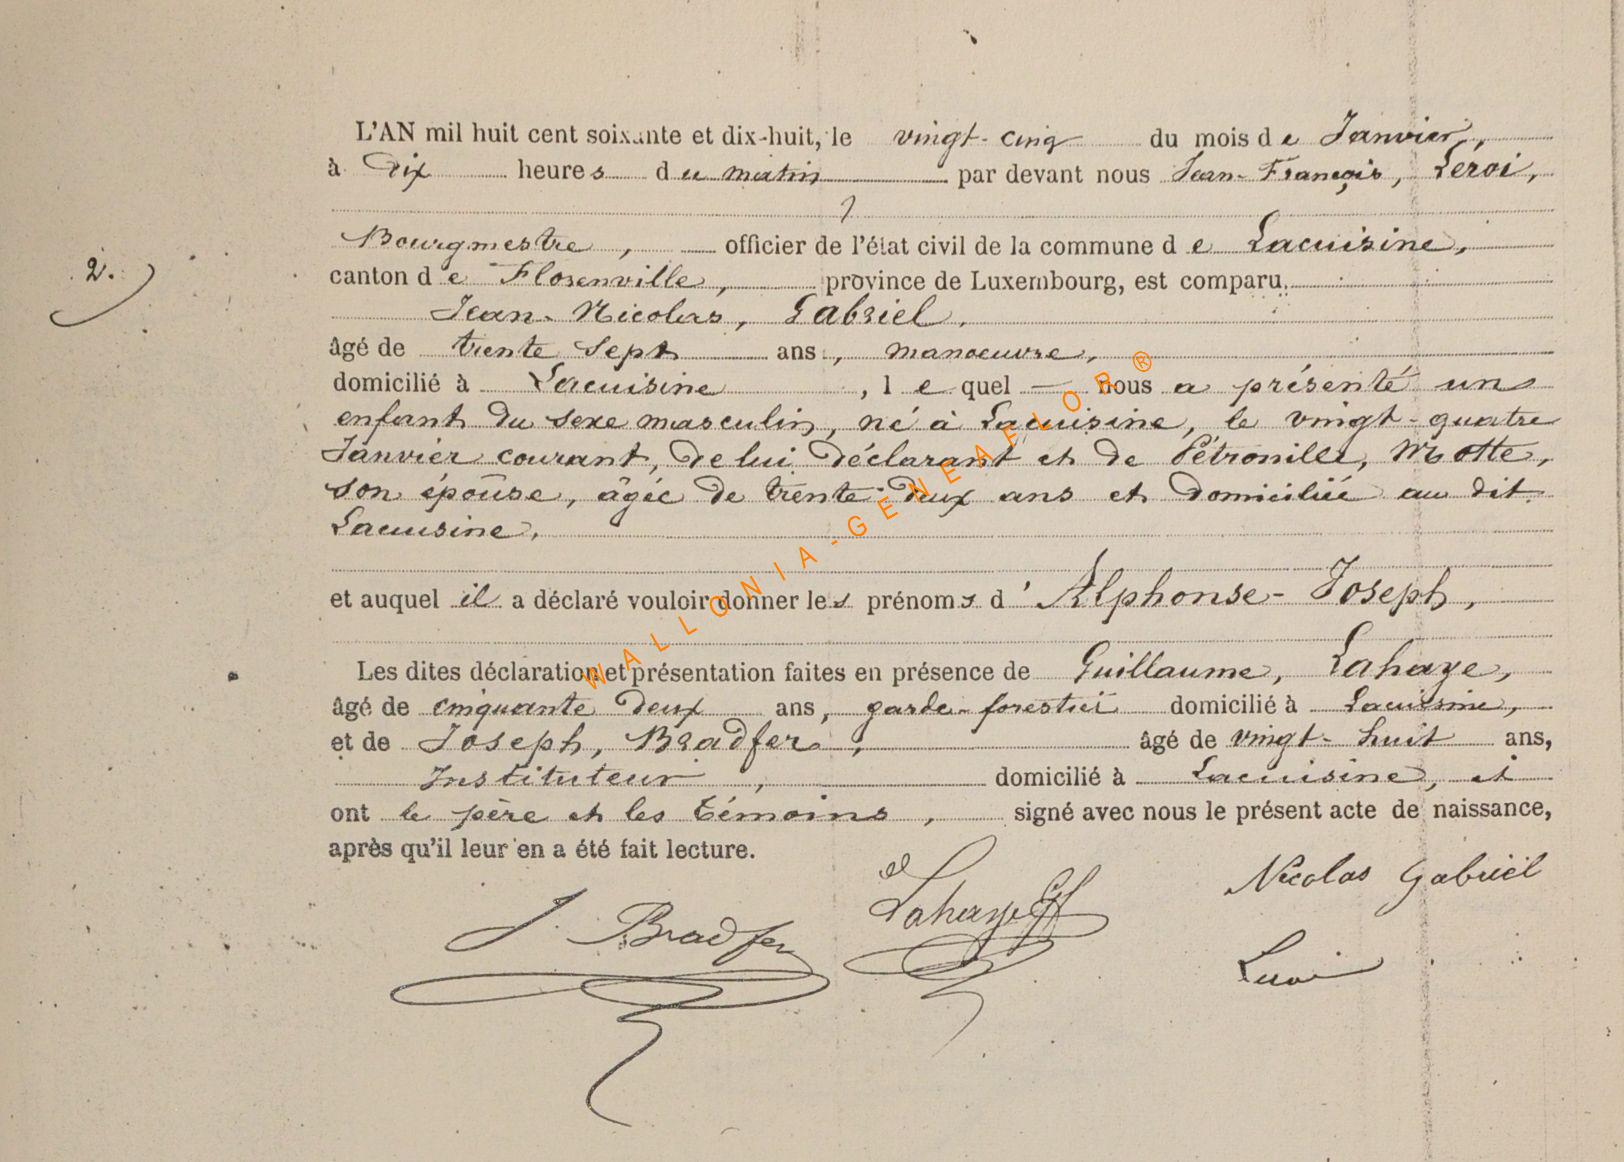 L'AN mil huit cent soixante et dix-huit, le vingt-cinq du mois de Janvier,
à Dix heures du matin par devant nous Jean-François, Leroi,
Bourgmestre, officier de l'état civil de la commune de Lacuisine,
2.
canton de Florenville, province de Luxembourg, est comparu
Jean-Nicolas, Gabriel,
âgé de trente sept ans, manoeuvre,
domicilié à Lacuisine, lequel — nous a présenté un
enfant du sexe masculin, né à Lacuisine, le vingt-quatre
Janvier courant, de lui déclarant et de Pétronille, Motte,
son épouse, âgée de trente-deux ans et domiciliée au dit
Lacuisine.
et auquel il a déclaré vouloir donner les prénoms d'Alphonse-Joseph,
Les dites déclaration et présentation faites en présence de Guillaume, Lahaye,
âgé de cinquante deux ans, garde-forestier domicilié à Lacuisine,
et de Joseph, Bradfer, âgé de vingt-huit ans,
Instituteur, domicilié à Lacuisine, et
ont le père et les témoins, signé avec nous le présent acte de naissance,
après qu'il leur en a été fait lecture.
Nicolas Gabriël
Lahaye
J. Bradfer
Leroi
WALLONIA-GENEAFLOR®